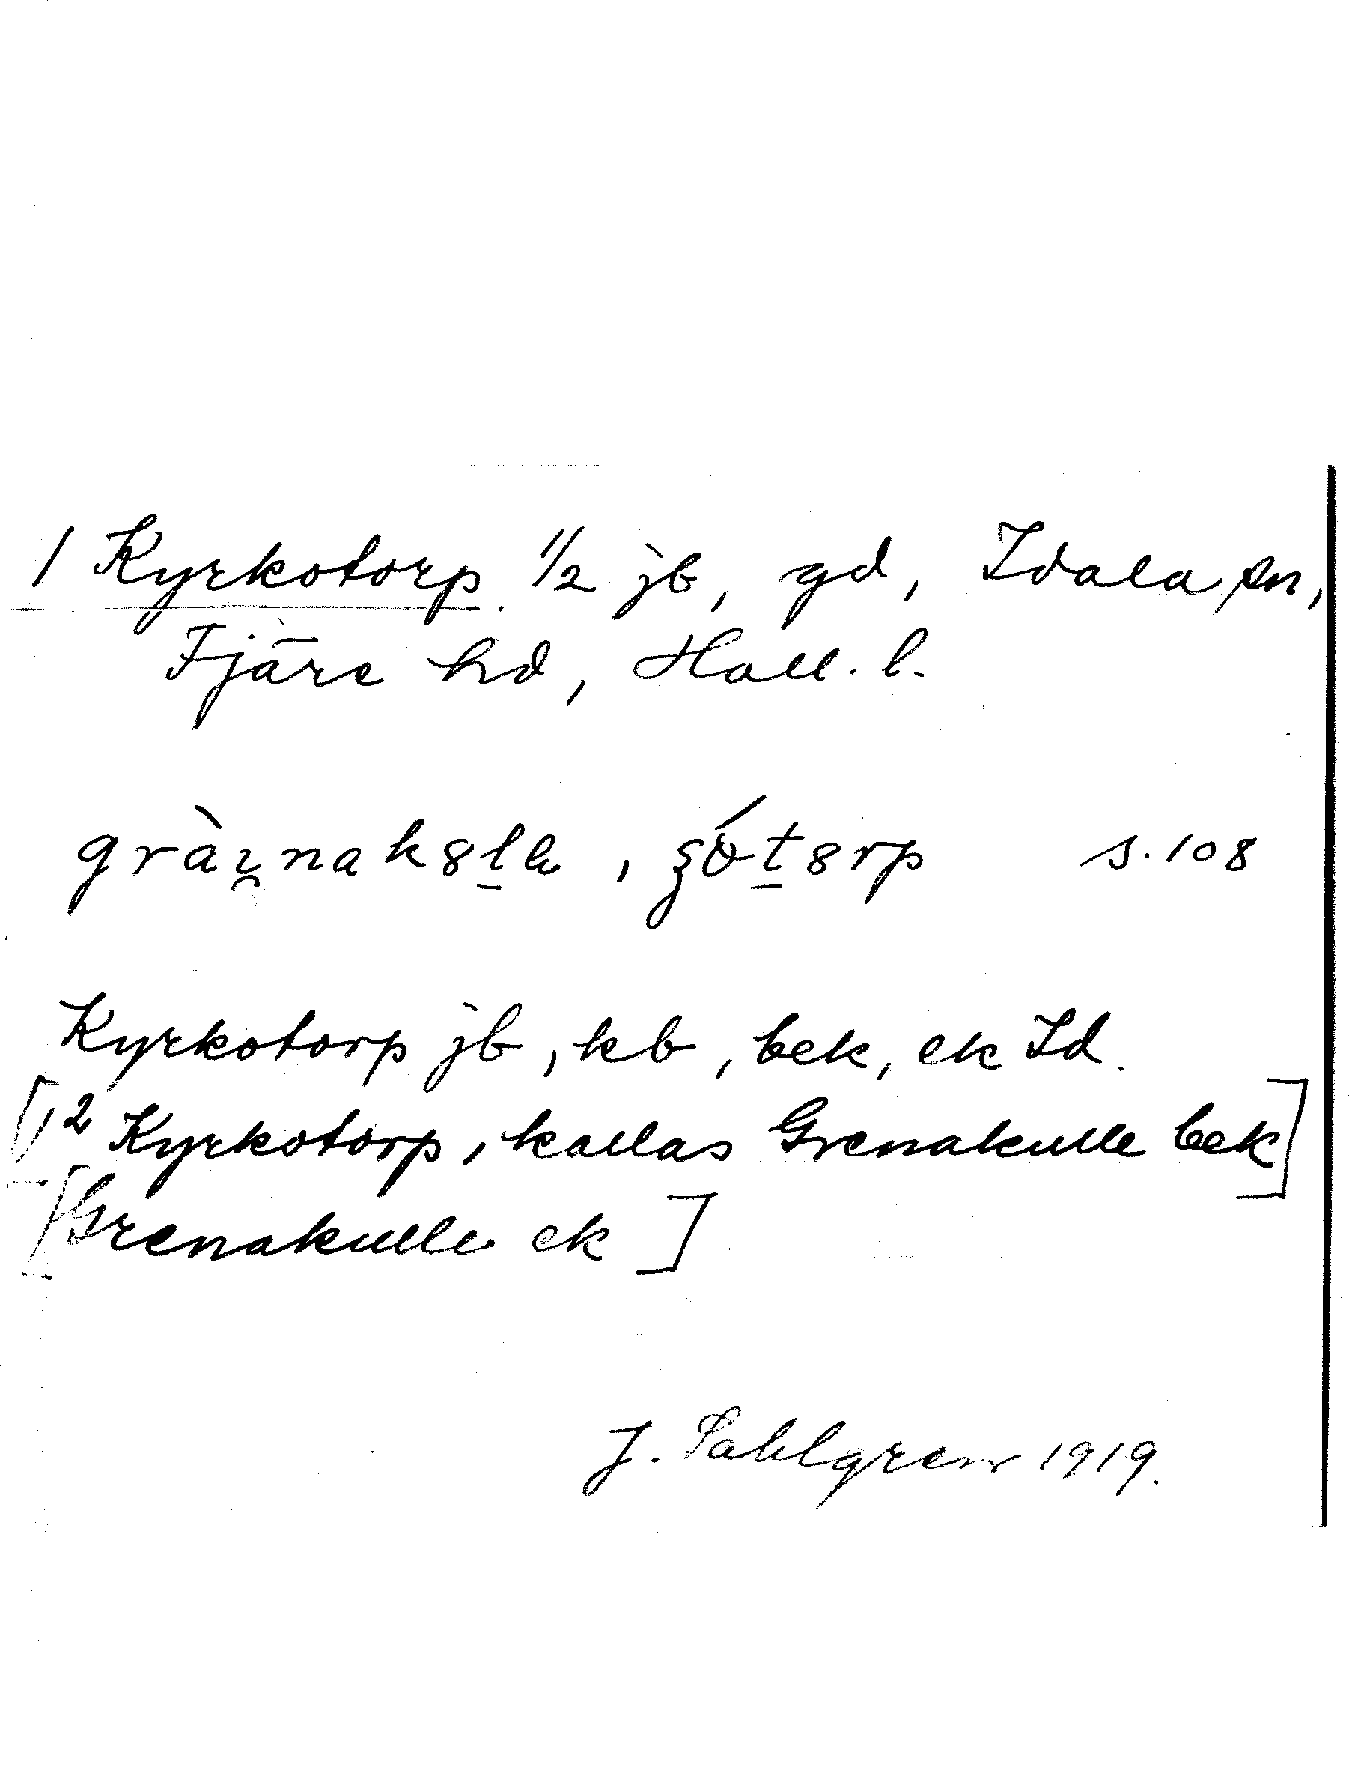 1 Kyrkotorp 1/2 jb, gd, Idala sn,
Fjäre hd, Hall. l.
s. 108
Kyrkotorp jb, kb, bek, ek Id.
[1/2 Kyrkotorp, kallas Grenakulle bek]
[Grenakulle ek]
J. Sahlgren 1919.